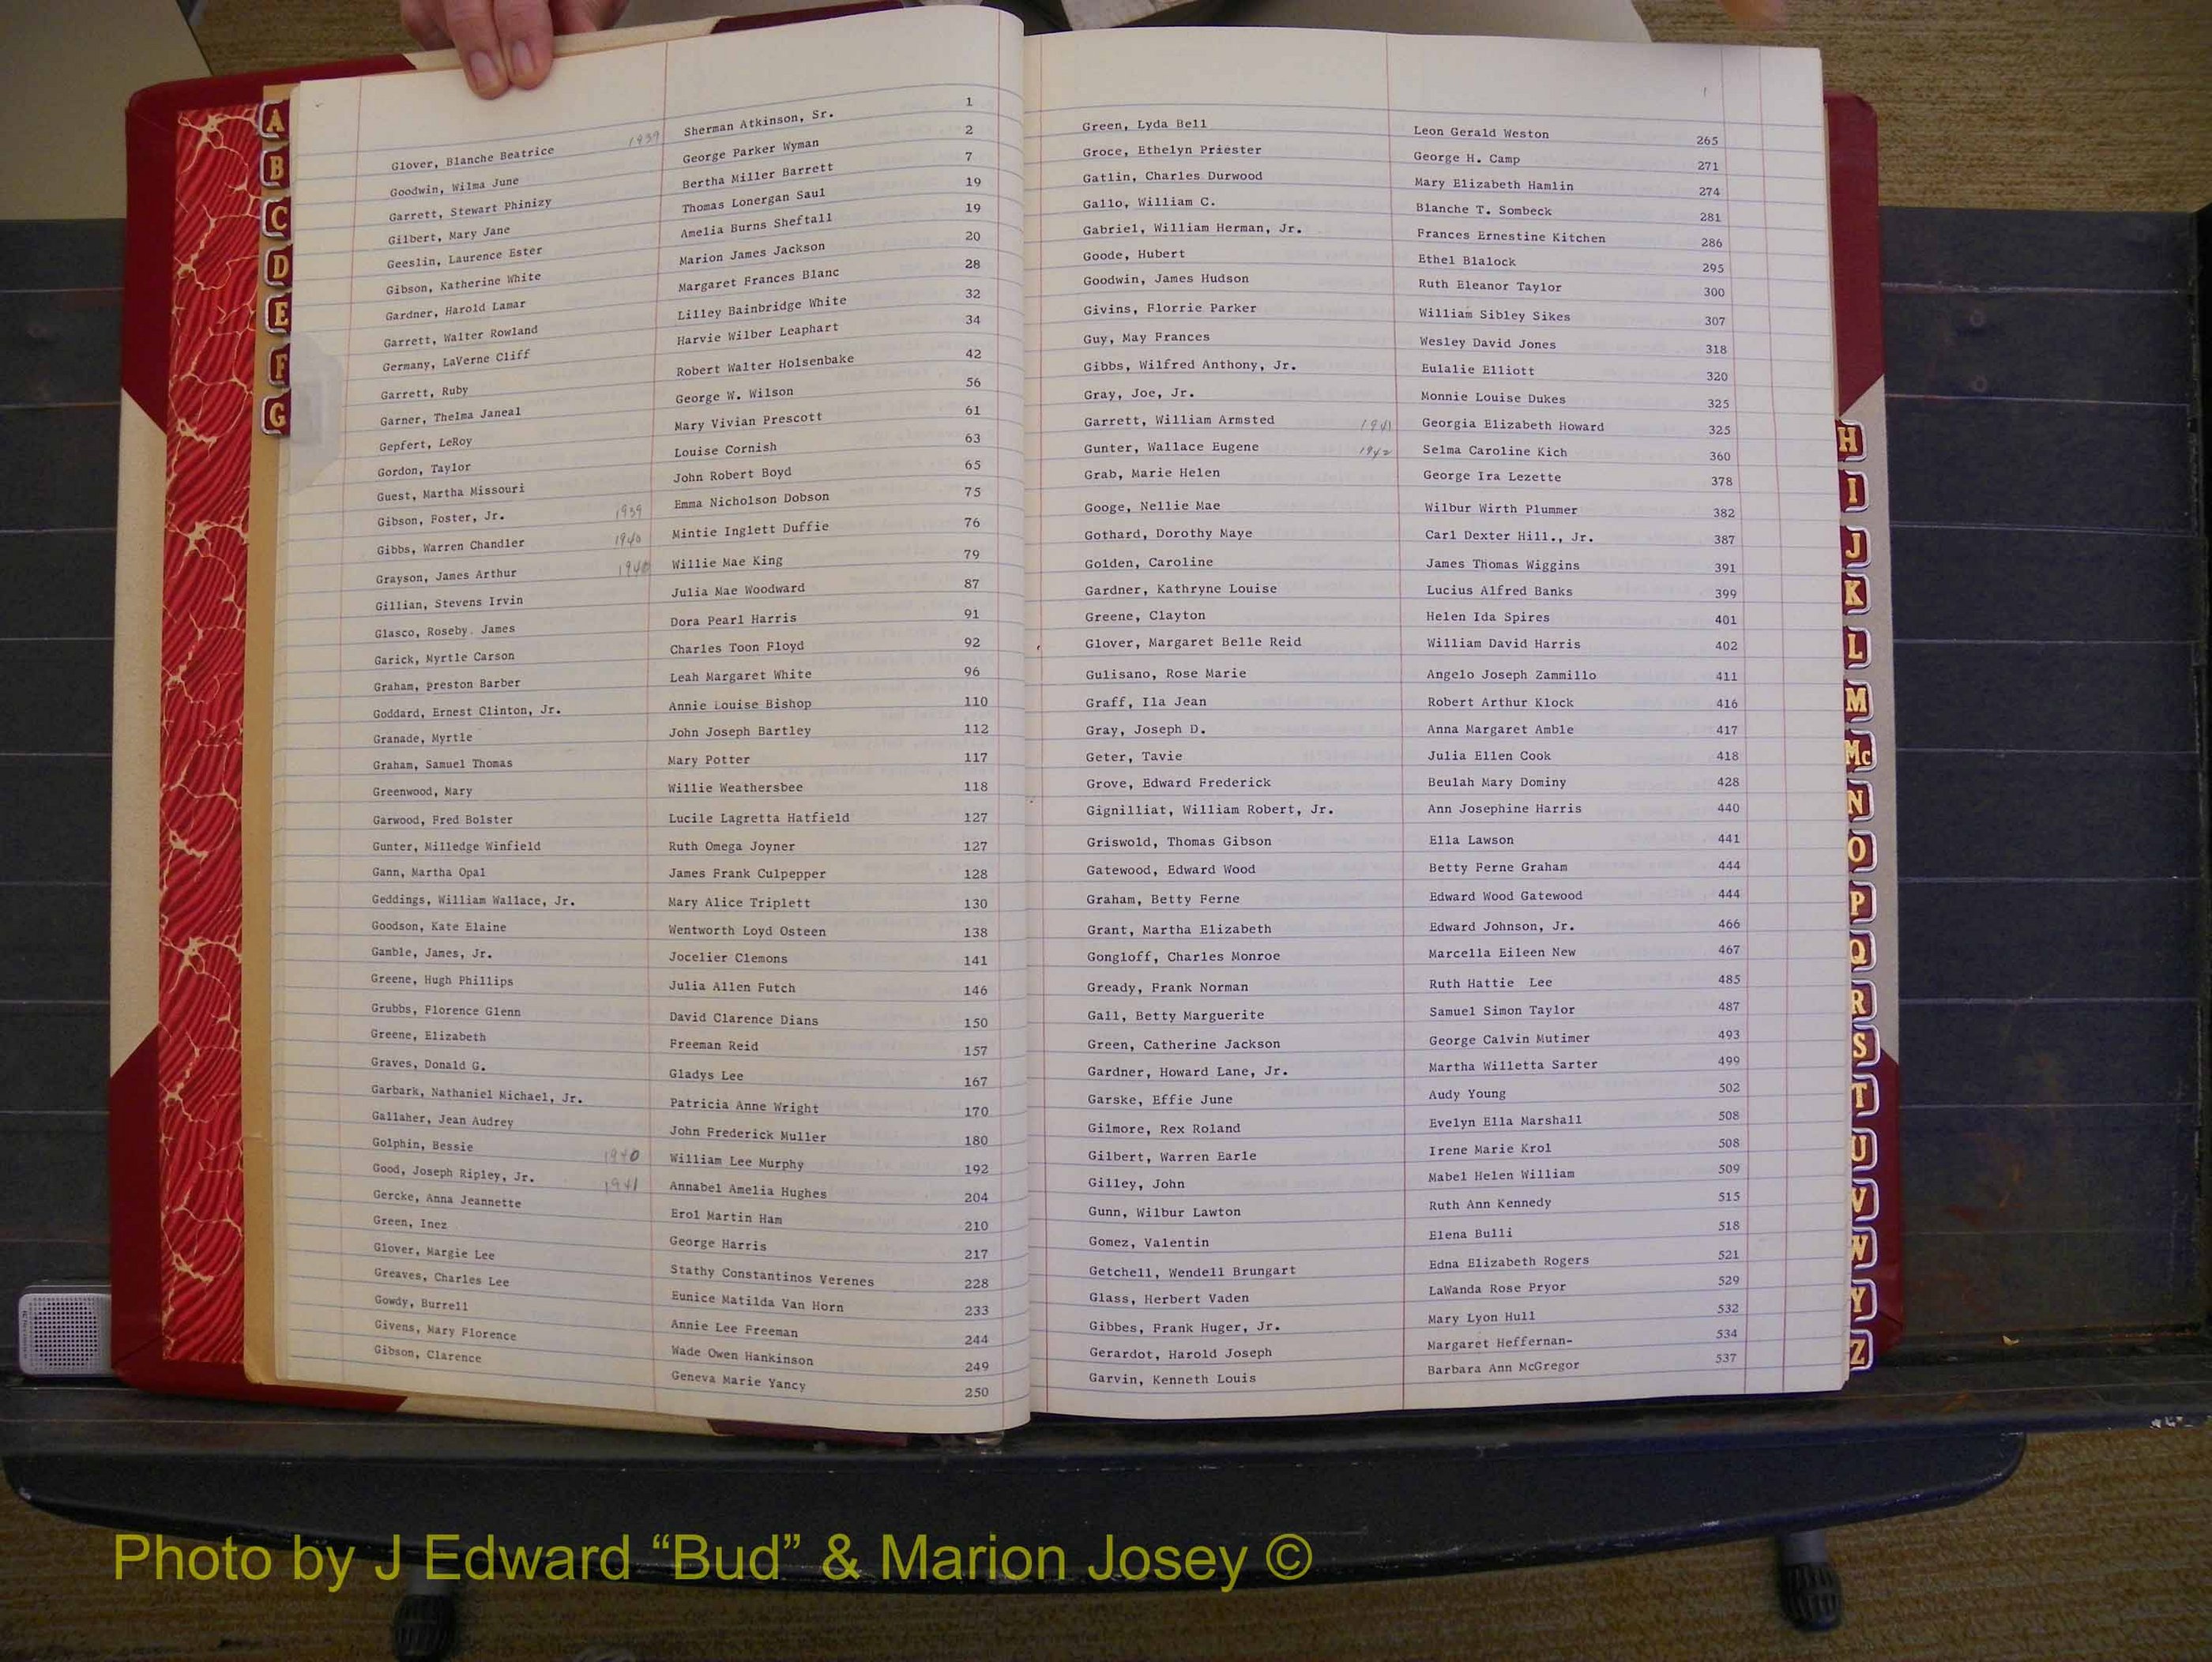 A
B
C
D
E
F
G
Glover, Blanche Beatrice 1939 Sherman Atkinson, Sr. 1
Goodwin, Wilma June George Parker Wyman 2
Garrett, Stewart Phinizy Bertha Miller Barrett 7
Gilbert, Mary Jane Thomas Lonergan Saul 19
Geeslin, Laurence Ester Amelia Burns Sheftall 19
Gibson, Katherine White Marion James Jackson 20
Gardner, Harold Lamar Margaret Frances Blanc 28
Garrett, Walter Rowland Lilley Bainbridge White 32
Germany, LaVerne Cliff Harvie Wilber Leaphart 34
Garrett, Ruby Robert Walter Holsenbake 42
Garner, Thelma Janeal George W. Wilson 56
Gepfert, LeRoy Mary Vivian Prescott 61
Gordon, Taylor Louise Cornish 63
Guest, Martha Missouri John Robert Boyd 65
Gibson, Foster, Jr. 1939 Emma Nicholson Dobson 75
Gibbs, Warren Chandler 1940 Mintie Inglett Duffie 76
Grayson, James Arthur 1940 Willie Mae King 79
Gillian, Stevens Irvin Julia Mae Woodward 87
Glasco, Roseby. James Dora Pearl Harris 91
Garick, Myrtle Carson Charles Toon Floyd 92
Graham, Preston Barber Leah Margaret White 96
Goddard, Ernest Clinton, Jr. Annie Louise Bishop 110
Granade, Myrtle John Joseph Bartley 112
Graham, Samuel Thomas Mary Potter 117
Greenwood, Mary Willie Weathersbee 118
Garwood, Fred Bolster Lucile Lagretta Hatfield 127
Gunter, Milledge Winfield Ruth Omega Joyner 127
Gann, Martha Opal James Frank Culpepper 128
Geddings, William Wallace, Jr. Mary Alice Triplett 130
Goodson, Kate Elaine Wentworth Loyd Osteen 138
Gamble, James, Jr. Jocelier Clemons 141
Greene, Hugh Phillips Julia Allen Futch 146
Grubbs, Florence Glenn David Clarence Dians 150
Greene, Elizabeth Freeman Reid 157
Graves, Donald G. Gladys Lee 167
Garbark, Nathaniel Michael, Jr. Patricia Anne Wright 170
Gallaher, Jean Audrey John Frederick Muller 180
Golphin, Bessie 1940 William Lee Murphy 192
Good, Joseph Ripley, Jr. 1941 Annabel Amelia Hughes 204
Gercke, Anna Jeannette Erol Martin Ham 210
Green, Inez George Harris 217
Glover, Margie Lee Stathy Constantinos Verenes 228
Greaves, Charles Lee Eunice Matilda Van Horn 233
Gowdy, Burrell Annie Lee Freeman 244
Givens, Mary Florence Wade Owen Hankinson 249
Gibson, Clarence Geneva Marie Yancy 250
Green, Lyda Bell Leon Gerald Weston 265
Groce, Ethelyn Priester George H. Camp 271
Gatlin, Charles Durwood Mary Elizabeth Hamlin 274
Gallo, William C. Blanche T. Sombeck 281
Gabriel, William Herman, Jr. Frances Ernestine Kitchen 286
Goode, Hubert Ethel Blalock 295
Goodwin, James Hudson Ruth Eleanor Taylor 300
Givins, Florrie Parker William Sibley Sikes 307
Guy, May Frances Wesley David Jones 318
Gibbs, Wilfred Anthony, Jr. Eulalie Elliott 320
Gray, Joe, Jr. Monnie Louise Dukes 325
Garrett, William Armsted 1941 Georgia Elizabeth Howard 325
Gunter, Wallace Eugene 1942 Selma Caroline Kich 360
Grab, Marie Helen George Ira Lezette 378
Googe, Nellie Mae Wilbur Wirth Plummer 382
Gothard, Dorothy Maye Carl Dexter Hill., Jr. 387
Golden, Caroline James Thomas Wiggins 391
Gardner, Kathryne Louise Lucius Alfred Banks 399
Greene, Clayton Helen Ida Spires 401
Glover, Margaret Belle Reid William David Harris 402
Gulisano, Rose Marie Angelo Joseph Zammillo 411
Graff, Ila Jean Robert Arthur Klock 416
Gray, Joseph D. Anna Margaret Amble 417
Geter, Tavie Julia Ellen Cook 418
Grove, Edward Frederick Beulah Mary Dominy 428
Gignilliat, William Robert, Jr. Ann Josephine Harris 440
Griswold, Thomas Gibson Ella Lawson 441
Gatewood, Edward Wood Betty Ferne Graham 444
Graham, Betty Ferne Edward Wood Gatewood 444
Grant, Martha Elizabeth Edward Johnson, Jr. 466
Gongloff, Charles Monroe Marcella Eileen New 467
Gready, Frank Norman Ruth Hattie Lee 485
Gall, Betty Marguerite Samuel Simon Taylor 487
Green, Catherine Jackson George Calvin Mutimer 493
Gardner, Howard Lane, Jr. Martha Willetta Sarter 499
Garske, Effie June Audy Young 502
Gilmore, Rex Roland Evelyn Ella Marshall 508
Gilbert, Warren Earle Irene Marie Krol 508
Gilley, John Mabel Helen William 509
Gunn, Wilbur Lawton Ruth Ann Kennedy 515
Gomez, Valentin Elena Bulli 518
Getchell, Wendell Brungart Edna Elizabeth Rogers 521
Glass, Herbert Vaden LaWanda Rose Pryor 529
Gibbes, Frank Huger, Jr. Mary Lyon Hull 532
Gerardot, Harold Joseph Margaret Heffernan- 534
Garvin, Kenneth Louis Barbara Ann McGregor 537
H
I
J
K
L
M
Mc
N
O
P
Q
R
S
T
U
V
W
Y
Z
Photo by J Edward “Bud” & Marion Josey ©